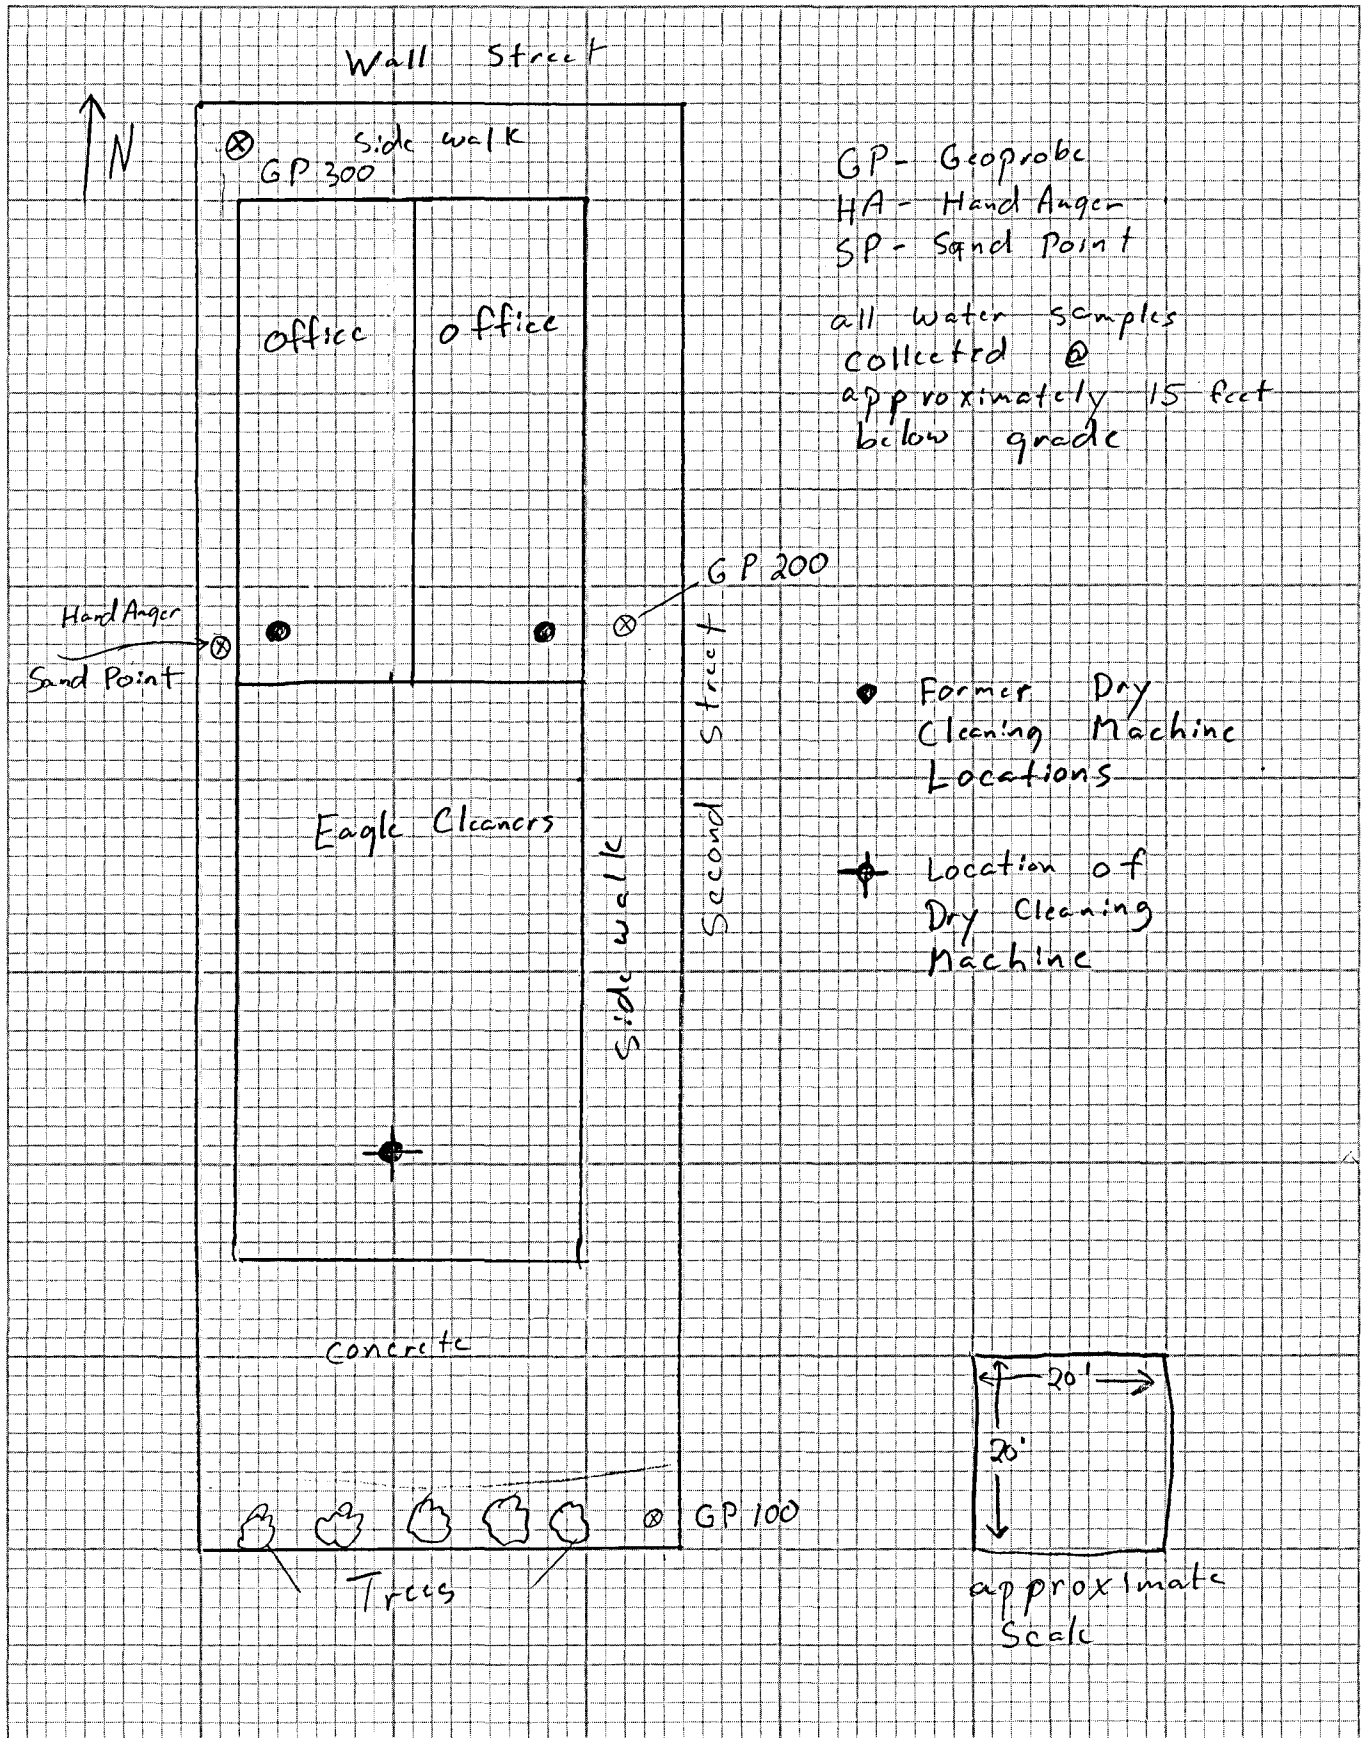 Wall Street
N
Side walk
GP 300
GP - Geoprobe
HA - Hand Auger
SP - Sand Point
all water samples
collected @
approximately 15 feet
below grade
office
office
GP 200
Hand Auger
Sand Point
Second Street
Former Dry
Cleaning Machine
Locations
Eagle Cleaners
Sidewalk
Location of
Dry Cleaning
Machine
concrete
20'
20'
GP 100
Trees
approximate
Scale